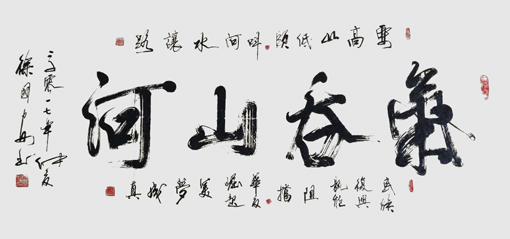 要高山低頭叫河水讓路
氣吞山河
民族復興孰能阻擋華夏崛起美夢成真
二零一七年仲夏
徐國書